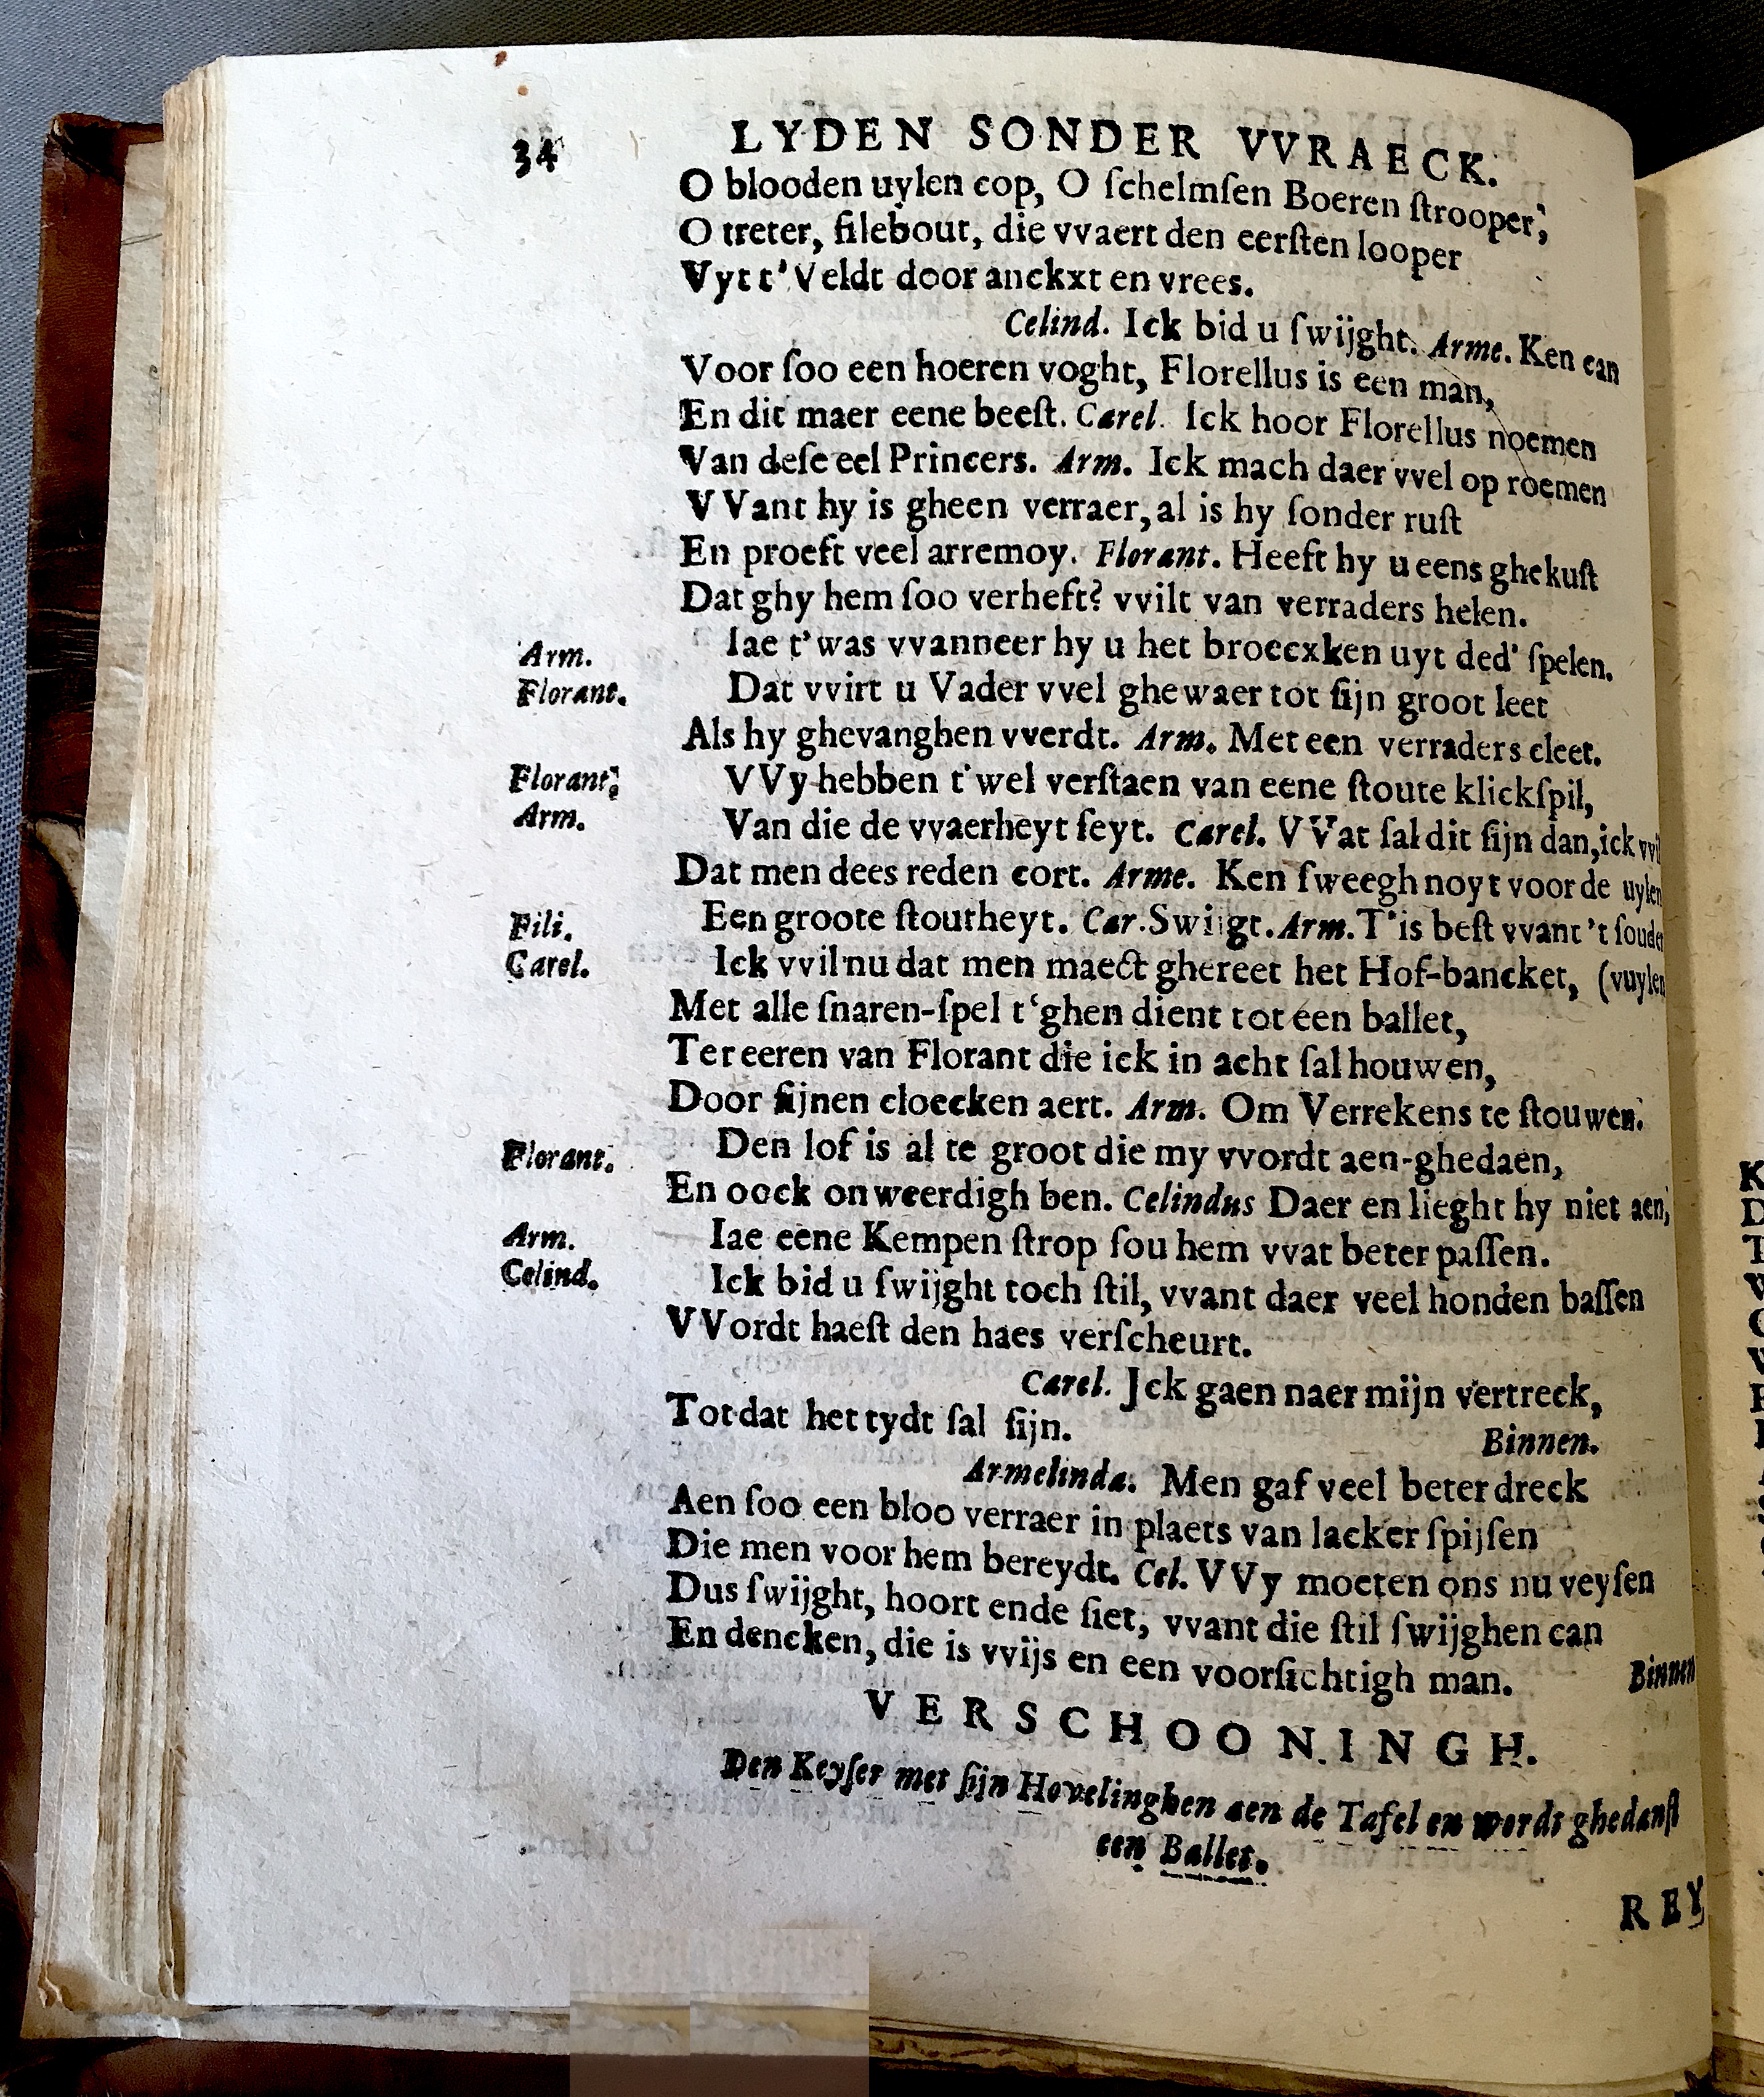 34 LYDEN SONDER VVRAECK.
O blooden uylen cop, O ſchelmſen Boeren ſtrooper,
O treter, filebout, die vvaert den eerſten looper
Vyt t'Veldt door anckxt en vrees.
Celind. Ick bid u ſwijght. Arme. Ken can
Voor ſoo een hoeren voght, Florellus is een man,
En dit maer eene beeſt. Carel. Ick hoor Florellus noemen
Van deſe eel Princers. Arm. Ick mach daer vvel op roemen
VVant hy is gheen verraer, al is hy ſonder ruſt
En proeft veel arremoy. Florant. Heeft hy u eens ghekuſt
Dat ghy hem ſoo verheft? vvilt van verraders helen.
Arm. Iae t'was vvanneer hy u het broecxken uyt ded' ſpelen.
Florant. Dat vvirt u Vader vvel ghewaer tot ſijn groot leet
Als hy ghevanghen vverdt. Arm. Met een verraders cleet.
Florant. VVy hebben t'wel verſtaen van eene ſtoute klickſpil,
Arm. Van die de vvaerheyt ſeyt. Carel. VVat ſal dit ſijn dan, ick vvil
Dat men dees reden cort. Arme. Ken ſweegh noyt voor de uylen
Fili. Een groote ſtoutheyt. Car. Swijgt. Arm. T'is beſt vvant 't ſoude
Carel. Ick vvil nu dat men maeckt ghereet het Hof-bancket, (vuylen
Met alle ſnaren-ſpel t'ghen dient tot een ballet,
Ter eeren van Florant die ick in acht ſal houwen,
Door ſijnen cloecken aert. Arm. Om Verrekens te ſtouwen.
Florant. Den lof is al te groot die my vvordt aen-ghedaen,
En oock onweerdigh ben. Celindus Daer en lieght hy niet aen,
Arm. Iae eene Kempen ſtrop ſou hem vvat beter paſſen.
Celind. Ick bid u ſwijght toch ſtil, vvant daer veel honden baſſen
VVordt haeſt den haes verſcheurt.
Carel. Jck gaen naer mijn vertreck,
Tot dat het tydt ſal ſijn.
Binnen.
Armelinda. Men gaf veel beter dreck
Aen ſoo een bloo verraer in plaets van lacker ſpijſen
Die men voor hem bereydt. Cel. VVy moeten ons nu veyſen
Dus ſwijght, hoort ende ſiet, vvant die ſtil ſwijghen can
En dencken, die is vvijs en een voorſichtigh man.
Binnen
VERSCHOONINGH.
Den Keyſer met ſijn Hovelinghen aen de Tafel en wordt ghedanſt
een Ballet.
REY